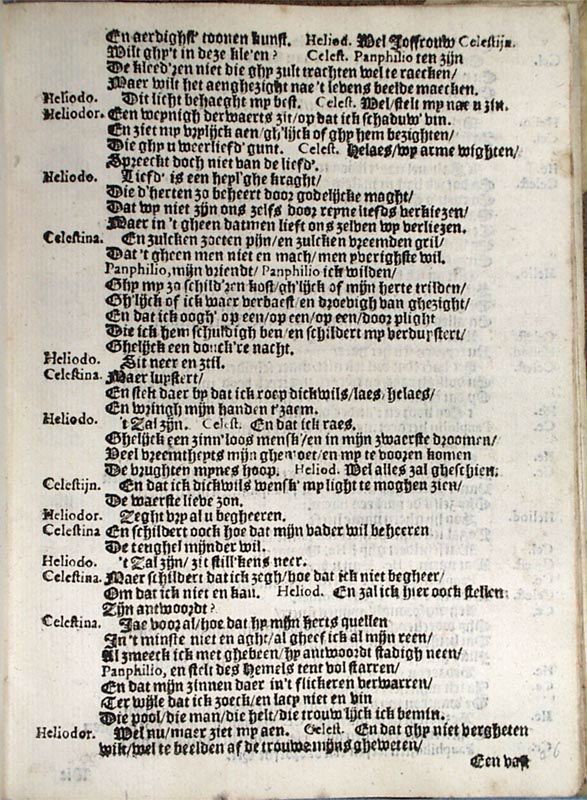 En aerdighst' toonen kunst. Heliod. Wel Joffrouw Celestijn.
Wilt ghy't in deze kle'en? Celest. Panphilio ten zijn
De kleed'ren niet die ghy zult trachten wel te raecken/
Maer wilt het aenghezight nae 't levens beelde maecken.
Heliodo. Dit licht behaeght my best. Celest. Wel/stelt my nae u zin.
Heliodor. Een weynigh derwaerts zit/op dat ick schaduw' vin.
En ziet my vrylijck aen/gh'lijck of ghy hem bezighten/
Die ghy u weerliefd' gunt. Celest. Helaes/wy arme wighten/
Spreeckt doch niet van de liefd'.
Heliodo. Liefd' is een heyl'ghe kraght/
Die d'herten zo beheert door godelijcke maght/
Dat wy niet zijn ons zelfs door reyne liefds verkiezen/
Maer in 't gheen datmen lieft ons zelven wy verliezen.
Celestina. En zulcken zoeten pijn/en zulcken vreemden gril/
Dat 't gheen men niet en mach/men yverighste wil.
Panphilio, mijn vriendt/Panphilio ick wilden/
Ghy my zo schild'ren kost/gh'lijck of mijne herte trilden/
Gh'lijck of ick waer verbaest/en droevigh van ghezight/
En dat ick oogh' op een/op een/op een/door plight
Die ick hem schuldigh ben/en schildert my verduystert/
Ghelijck een donck're nacht.
Heliodo. Sit neer en stil.
Celestina. Maer luystert/
En stelt daer by dat ick roep dickwils/laes/helaes/
En wringh mijn handen t'zaem.
Heliodo. 't Zal zijn. Celest. En dat ick raes.
Ghelijck een zinn'loos mensk'/en in mijn zwaerste droomen/
Veel vreemtheyts mijn ghemoet/en my te vooren komen
De vrughten mynes hoop. Heliod. Wel alles zal gheschien.
Celestijn. En dat ick dickwils wensk' my light te moghen zien/
De waerste lieve zon.
Heliodor. Zeght vry al u begheeren.
Celestina En schildert oock hoe dat mijn vader wil beheeren
De tenghel mijnder wil.
Heliodo. 't Zal zijn/zit still'kens neer.
Celestina. Maer schildert dat ick zegh/hoe dat ick niet begheer/
Om dat ick niet en kan. Heliod. En zal ick hier oock stellen
Zijn antwoordt?
Celestina. Jae voor al/hoe dat hy mijn herts quellen
In 't minste niet en aght/al gheef ick al mijn reen/
Al zmeeck ick met ghebeen/hy antwoordt stadigh neen/
Panphilio, en stelt des Hemels tent vol starren/
En dat mijn zinnen daer in't flickeren verwarren/
Ter wijle dat ick zoeck/en lacy niet en vin
Die pool/die man/die helt/die trouw'lijck ick bemin.
Heliodor. Wel nu/maer ziet my aen. Celest. En dat ghy niet vergheten
wilt/wel te beelden af de trouwe mijns gheweten/
Een vast